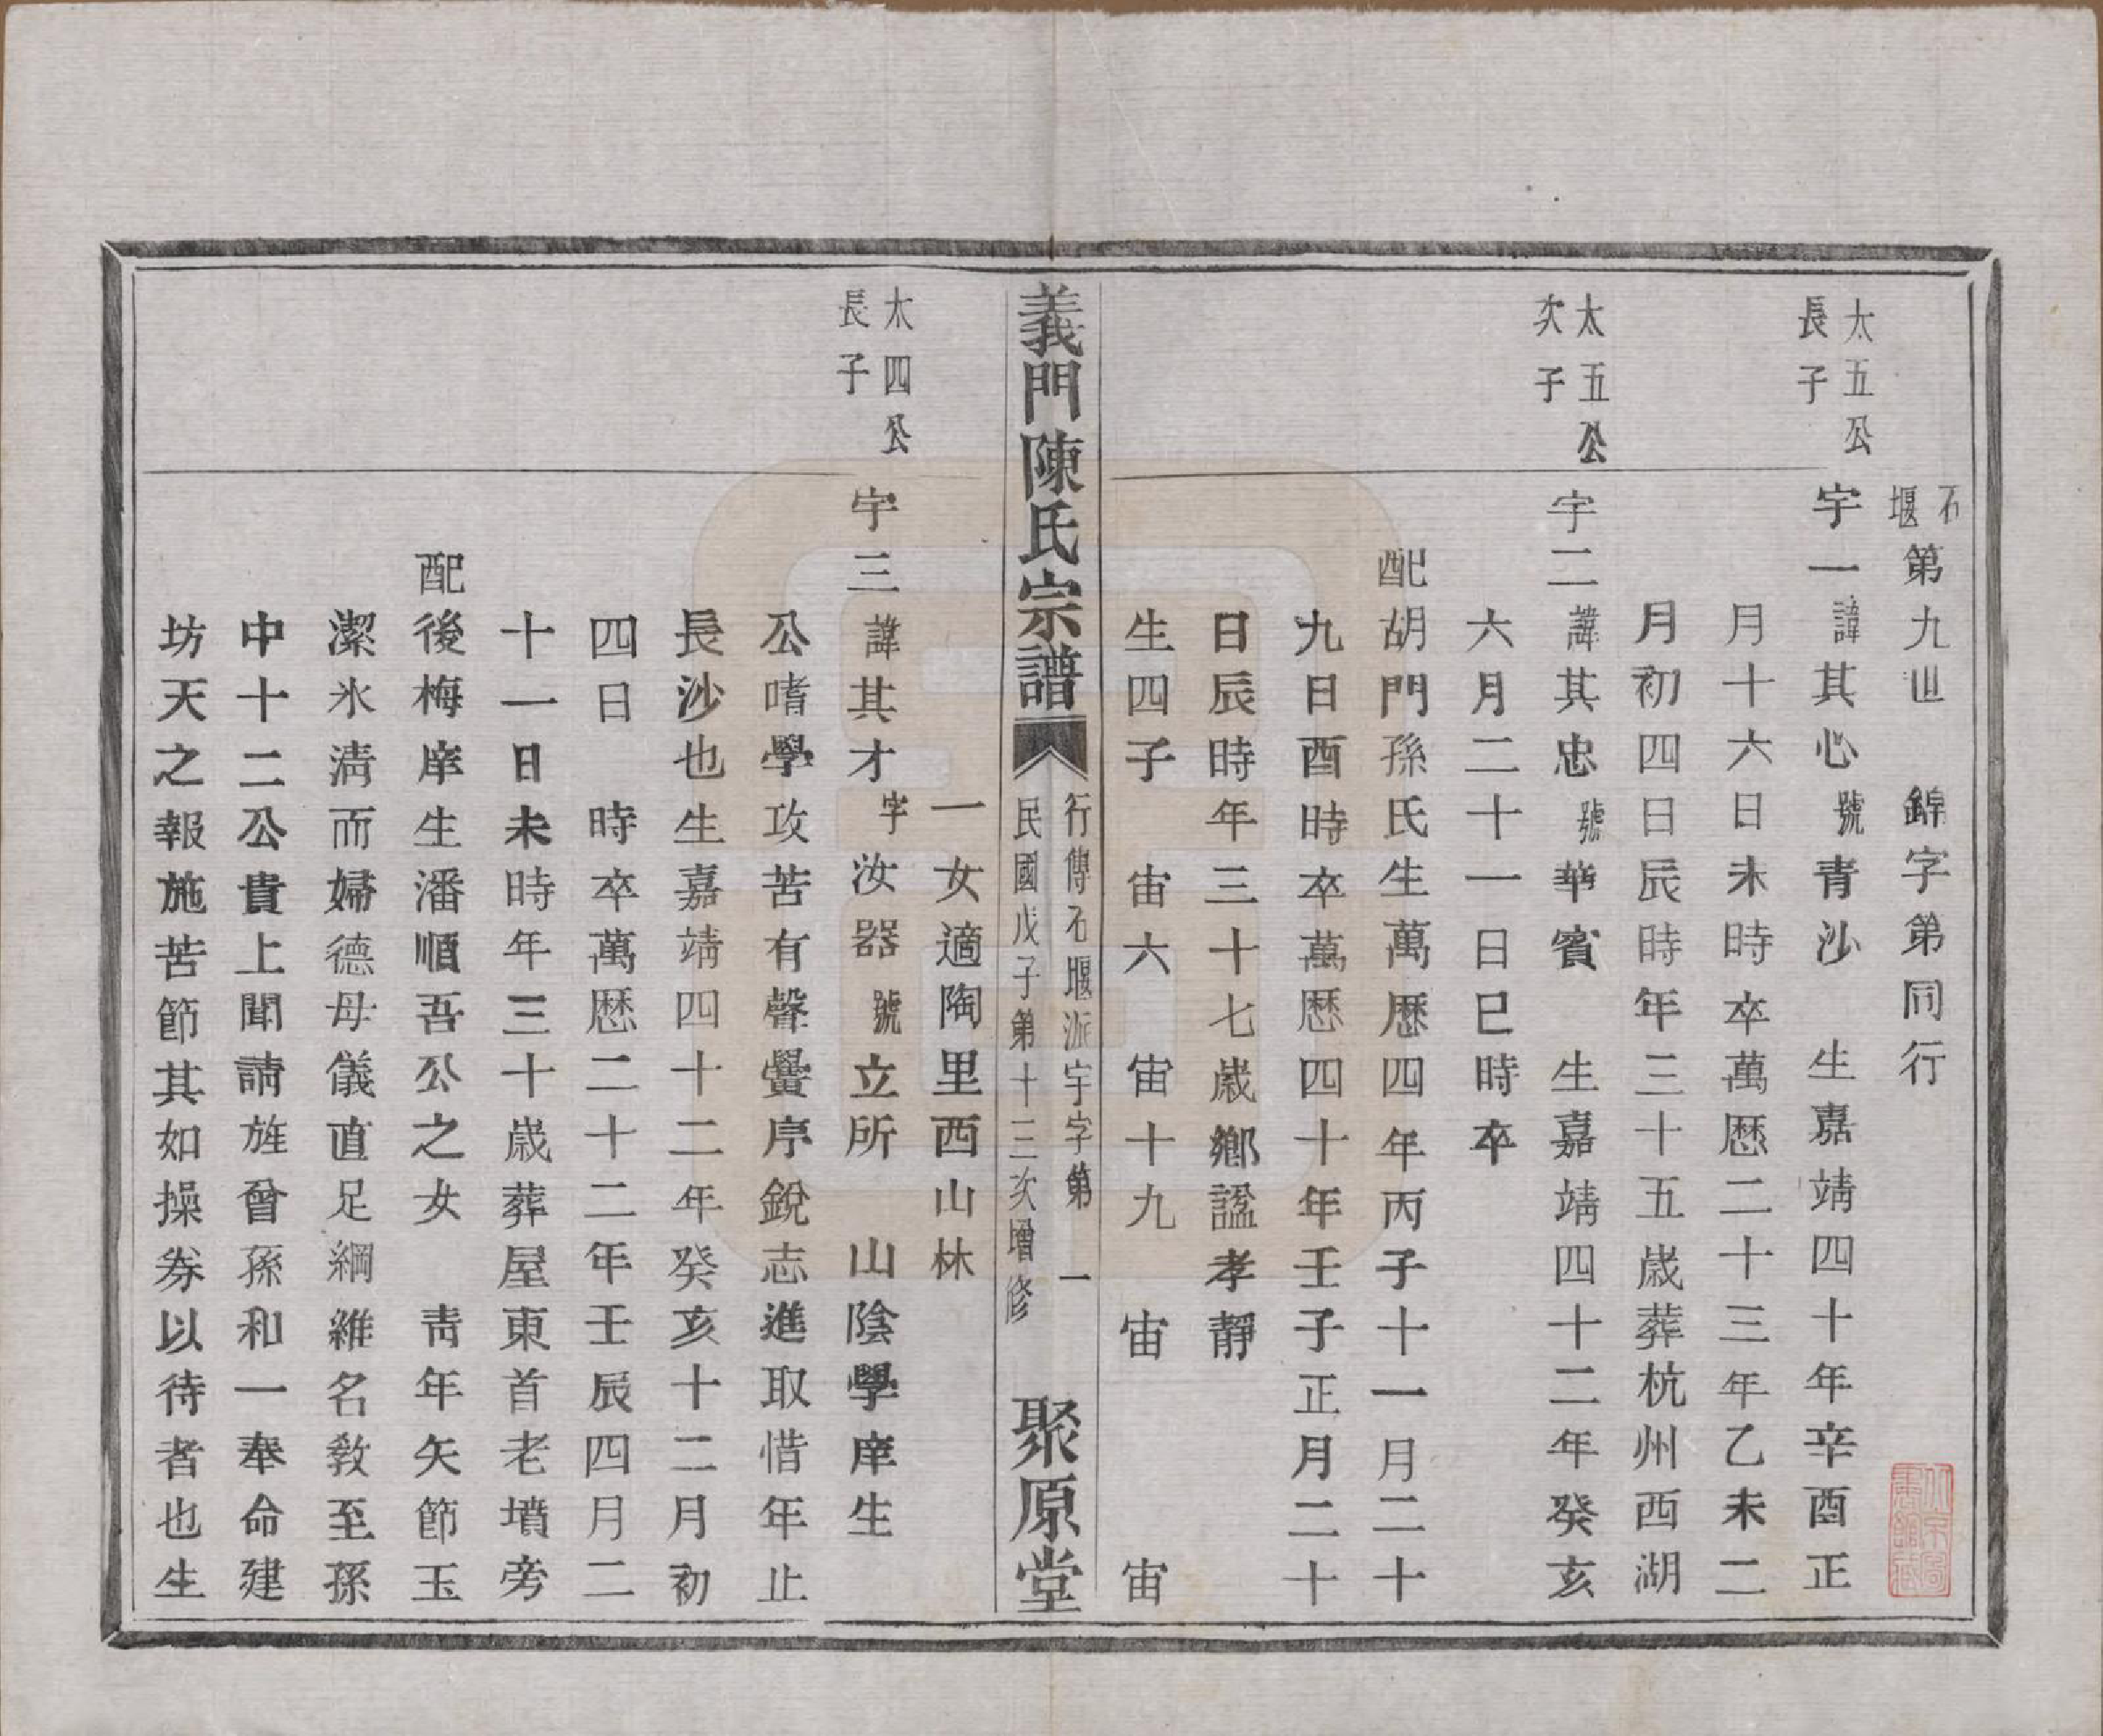 石堰第九世　錦字第同行
太五公長子
宇一諱其心號青沙　生嘉靖四十年辛酉正
月十六日未時卒萬歷二十三年乙未二
月初四日辰時年三十五歲葬杭州西湖
太五公次子
宇二諱其忠號華賓　生嘉靖四十二年癸亥
六月二十一日巳時卒
配胡門孫氏生萬歷四年丙子十一月二十
九日酉時卒萬歷四十年壬子正月二十
日辰時年三十七歲鄉謚孝靜
生四子　宙六　宙十九　宙　宙
義門陳氏宗譜
行傳石堰派宇字第　一
民國戊子第十三次增修
聚原堂
一女適陶里西山林
太四公長子
宇三諱其才字汝器號立所　山陰學庠生
公嗜學攻苦有聲黌序銳志進取惜年止
長沙也生嘉靖四十二年癸亥十二月初
四日　時卒萬歷二十二年壬辰四月二
十一日未時年三十歲葬屋東首老墳旁
配後梅庠生潘順吾公之女　青年矢節玉
潔氷淸而婦德母儀直足綱維名敎至孫
中十二公貴上聞請旌曾孫和一奉命建
坊天之報施苦節其如操券以待者也生